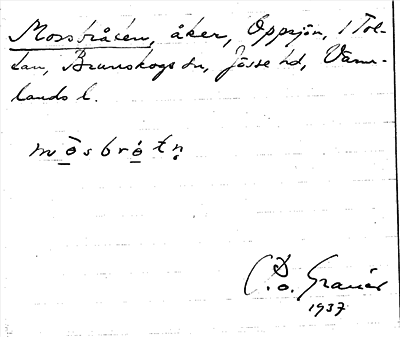 Mossbråten, åker, Oppsjön, 1 Tol-
tan, Brunskogs sn, Jösse hd, Värm-
lands l.
mòsbrótn̥
C. O. Granér
1937